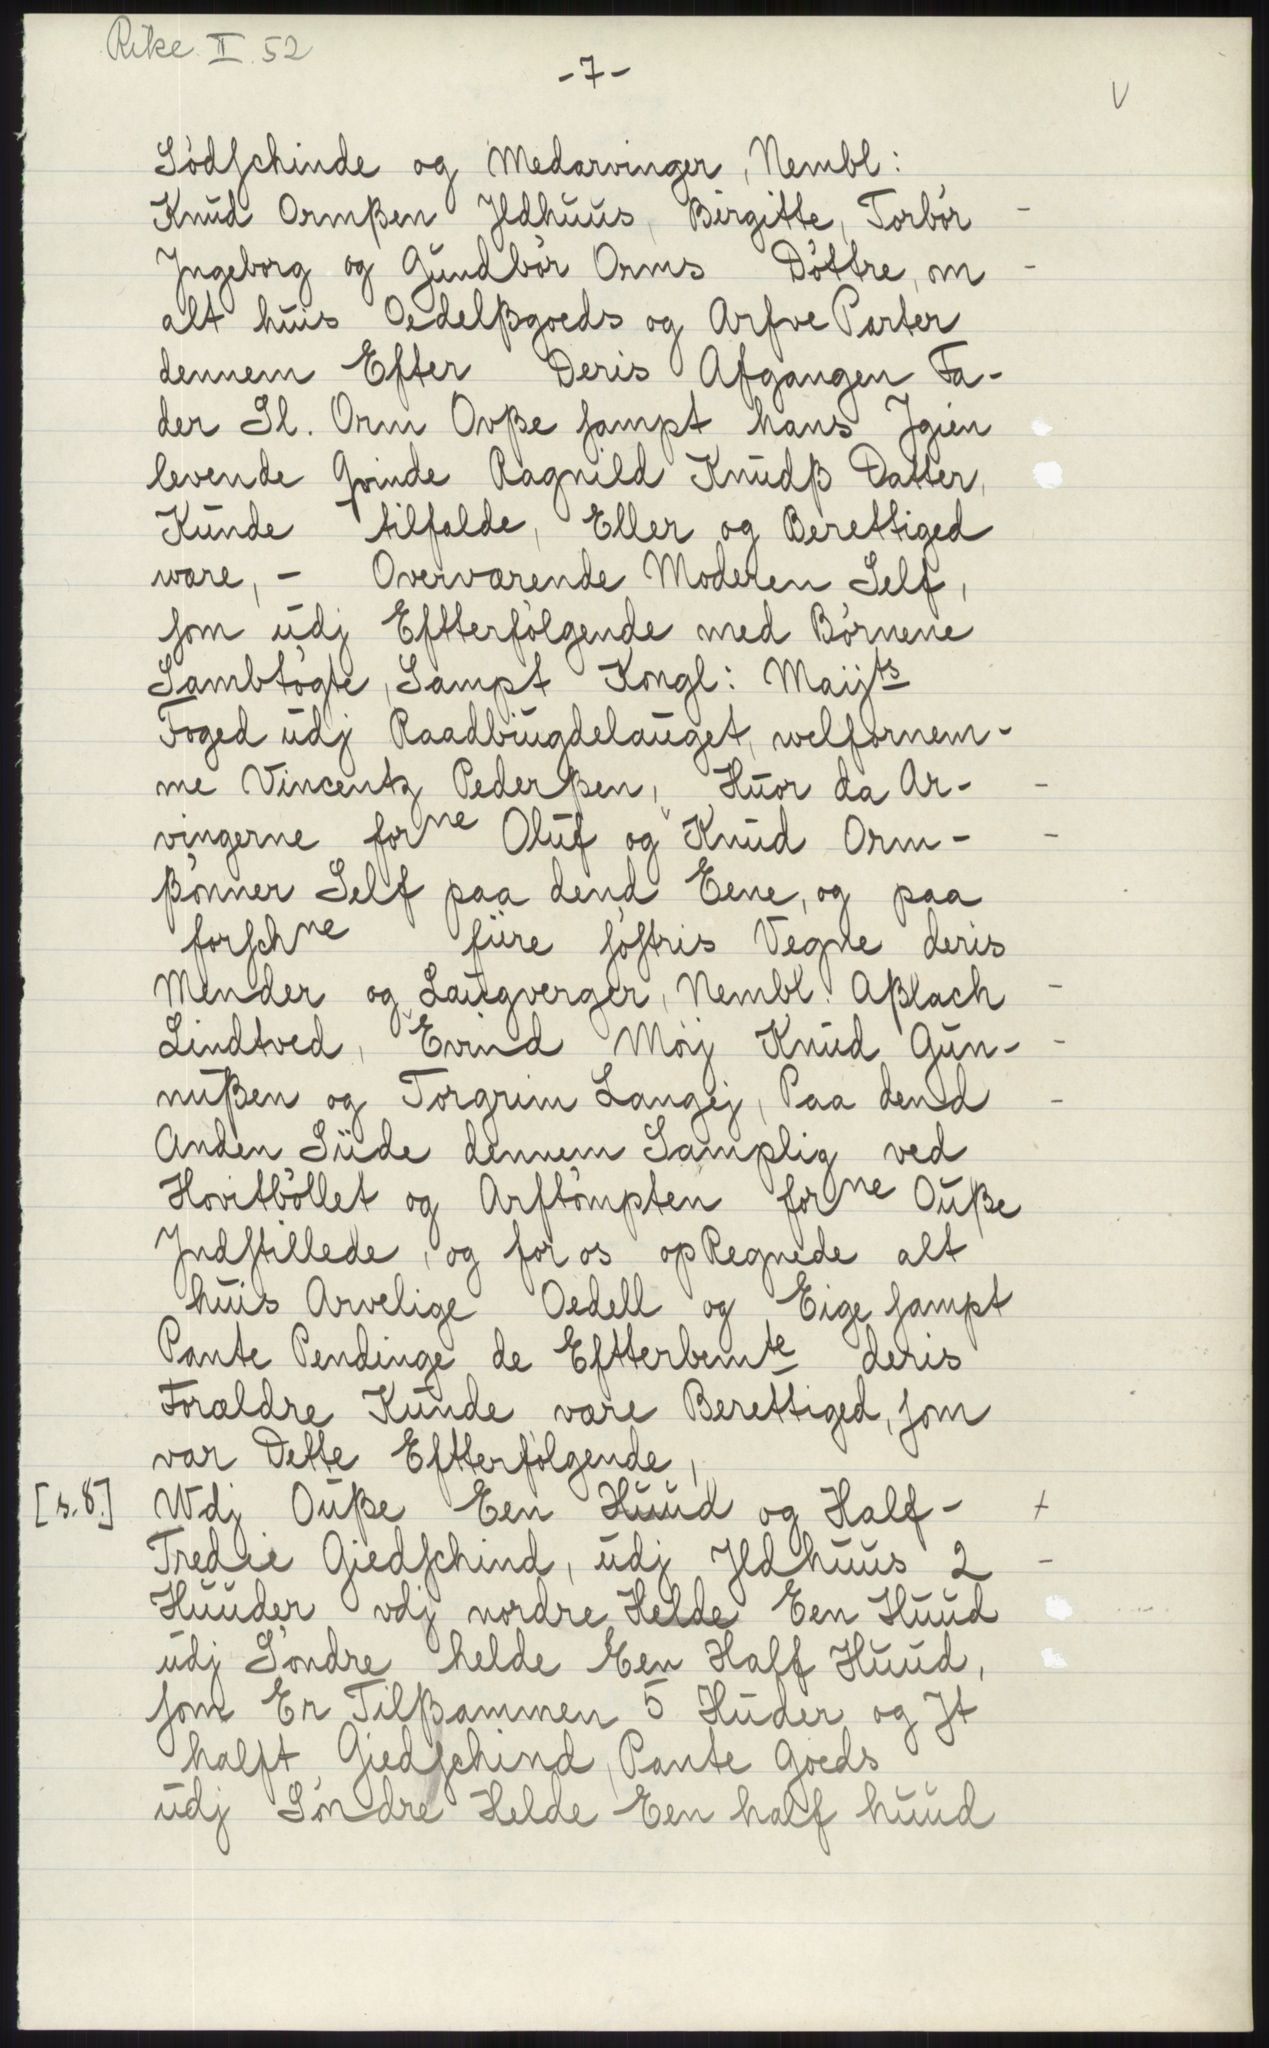 Rike II 52
-7-
V
Södschinde og Medarvinger, Nembl:
Knud Ormßen Jldhuus, Birgitte, Torbör -
Jngeborg og Gundbör Orms Döttre, om -
alt huis Oedelßgoeds og Arfve Parter
dennem Efter Deris Afgangen Fa-
der Sl. Orm Ovße sampt hans Jgien
levende Qvinde Ragnild Knudß Datter,
Kunde tilfalde, Eller og Berettiged
ware, - Overværende Moderen Self,
som udj Eftterfölgende med Börnene
Sambtögte, Sampt Kongl: Maijts
Foged udj Raadbiugdelauget, welfornem-
me Vincentz Pederßen, Huor da Ar- -
vingerne forne Oluf og Knud Orm- -
ßönner Self paa dend Eene, og paa
forschne fiire söstris Vegne deris
Mender og Laugverger, Nembl: Aßlach -
Lindtved, Evind Möj Knud Gun- -
nußen og Torgrim Langej, Paa dend -
Anden Siide dennem Samplig ved
Hovitböllet og Arftömpten forne Ouße
Jndstillede, og for os opRegnede alt
huis Arvelige Oedell og Eige sampt
Pante Pendinge de Eftterbemte deris
Forældre Kunde være Berettiged, som
var Dette Eftterfölgende,
[s.8.] Wdj Ouße Een Huud og Half- +
Tredie Giedschind, udj Jldhuus 2 -
Huuder vdj nordre Helde Een Huud
udj Söndre helde Een Half Huud,
som Er Tilßammen 5 Huder og Jt
halft Giedschind, Pante Goeds
udj Söndre Helde Een half huud